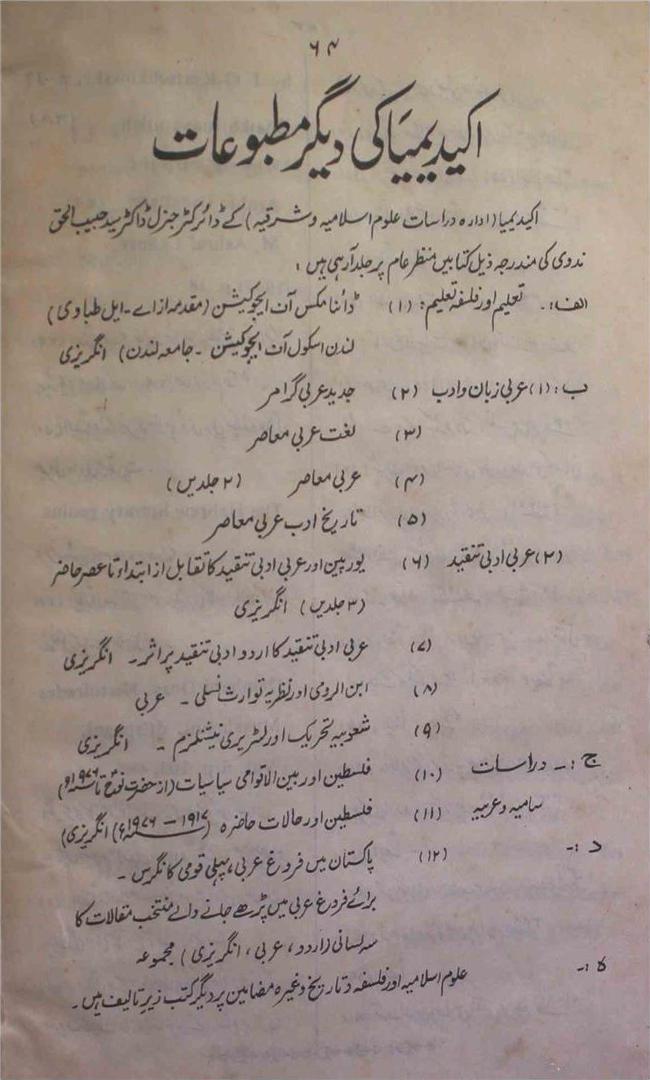 ۶۴
اکیدیمیا کی دیگر مطبوعات
اکیدیمیا (ادارہ دراسات علوم اسلامیہ و شرقیہ) کے ڈائرکٹر جنرل ڈاکٹر سید حبیب الحق
ندوی کی مندرجہ ذیل کتابیں منظر عام پر جلد آ رہی ہیں :
الف :۔ تعلیم اور فلسفہ تعلیم : (۱) ڈائنامکس آف ایجوکیشن (مقدمہ از اے ۔ ایل طباوی)
لندن اسکول آف ایجوکیشن ۔ جامعہ لندن) انگریزی
ب : (۱) عربی زبان و ادب (۲) جدید عربی گرامر
(۳) لغت عربی معاصر
(۴) عربی معاصر (۲ جلدیں)
(۵) تاریخ ادب عربی معاصر
(۲) عربی ادبی تنقید (۶) یورپین اور عربی ادبی تنقید کا تقابل از ابتداء تا عصر حاضر
(۳ جلدیں) انگریزی
(۷) عربی ادبی تنقید کا اردو ادبی تنقید پر اثر ۔ انگریزی
(۸) ابن الرومی اور نظریہ توارث نسلی ۔ عربی
(۹) شعوبیہ تحریک اور لٹریری نیشنلزم ۔ انگریزی
ج :۔ دراسات (۱۰) فلسطین اور بین الاقوامی سیاسیات (از حضرت نوحؑ تا ۱۹۷۶ء)
سامیہ و عربیہ (۱۱) فلسطین اور حالات حاضرہ (۱۹۱۷ – ۱۹۷۶ء) انگریزی)
د :۔ (۱۲) پاکستان میں فروغ عربی، پہلی قومی کانگرس ۔
برائے فروغ عربی میں پڑھے جانے والے منتخب مقالات کا
سہ لسانی (اردو ، عربی ، انگریزی) مجموعہ
ہ :۔ علوم اسلامیہ اور فلسفہ و تاریخ وغیرہ مضامین پر دیگر کتب زیر تالیف ہیں ۔